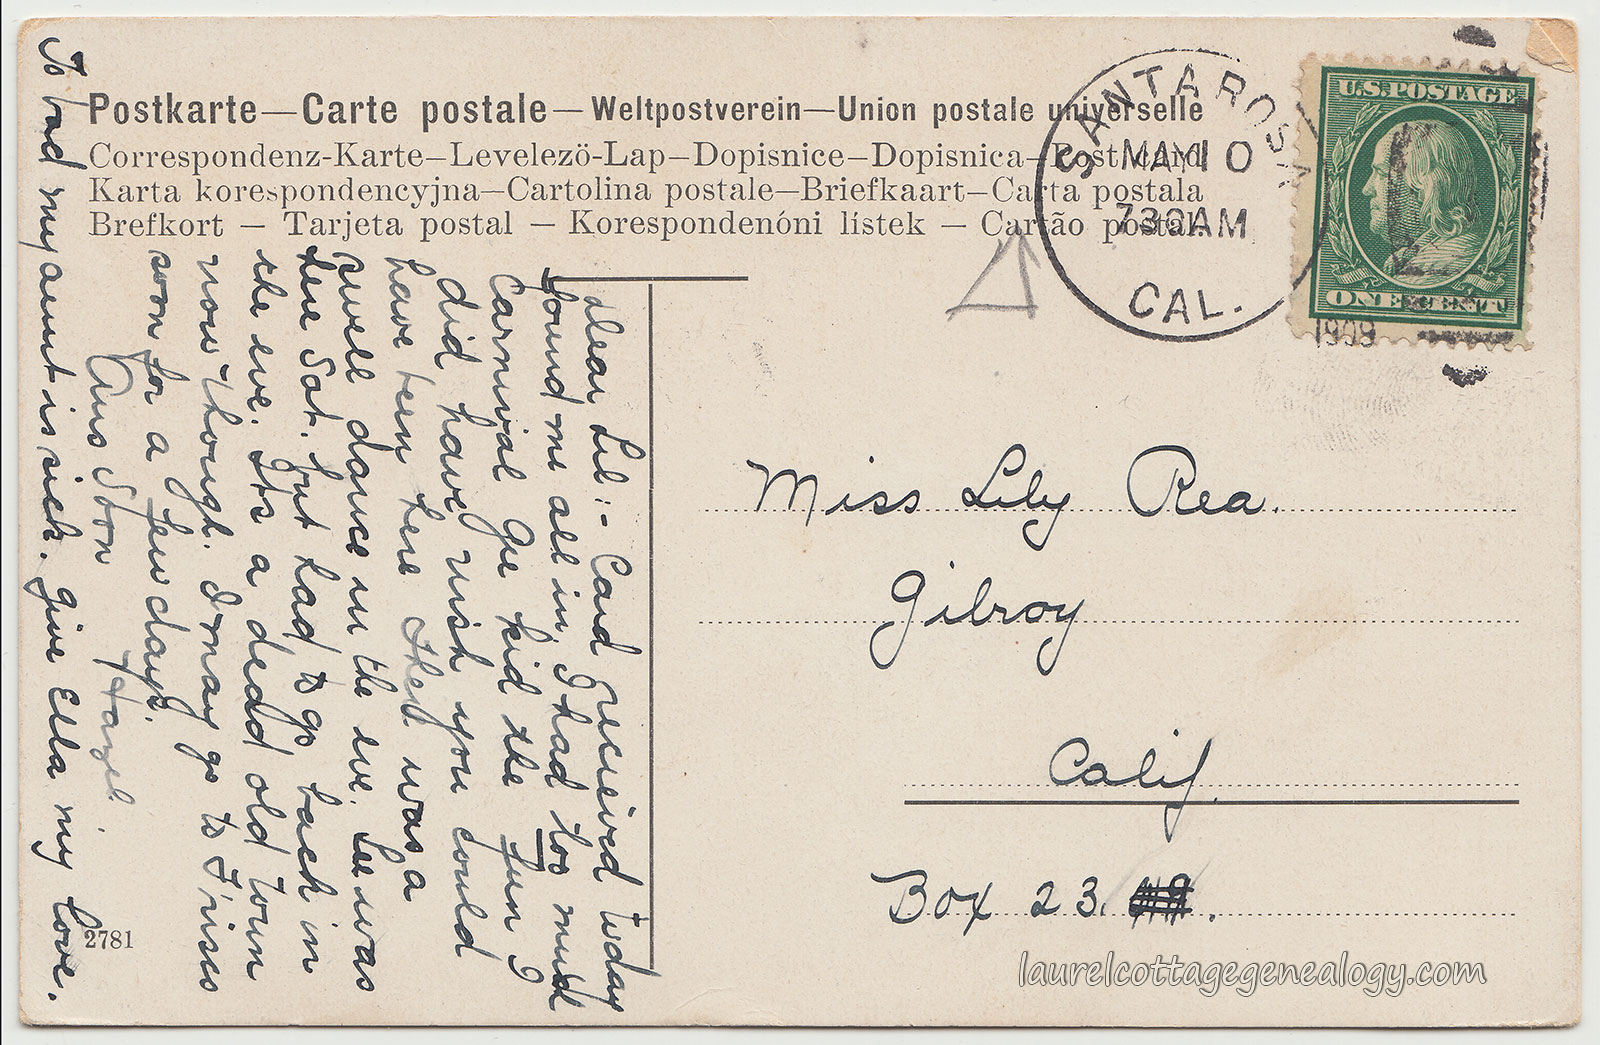 Postkarte—Carte postale—Weltpostverein—Union postale universelle
Correspondenz-Karte—Levelezö-Lap—Dopisnice—Dopisnica—Post card
Karta korespondencyjna—Cartolina postale—Briefkaart—Carta postala
Brefkort — Tarjeta postal — Korespondenóni lístek — Cartão postal.
SANTA ROSA
MAY 10
730AM
CAL.
1909
U.S. POSTAGE
ONE CENT
Dear Lil:- Card received today
found me all in, I had too much
Carnival Ge kid the fun I
did have, wish you could
have been here there was a
swell dance in the eve. Lee was
here Sat. but had to go back in
the eve. Its a dead old town
now though. I may go to Frisco
soon for a few days.
Ans Soon Hazel.
To bad my aunt is sick. Give Ella my love.
Miss Lily Rea.
Gilroy
Calif.
Box 23.
2781
laurelcottagegenealogy.com